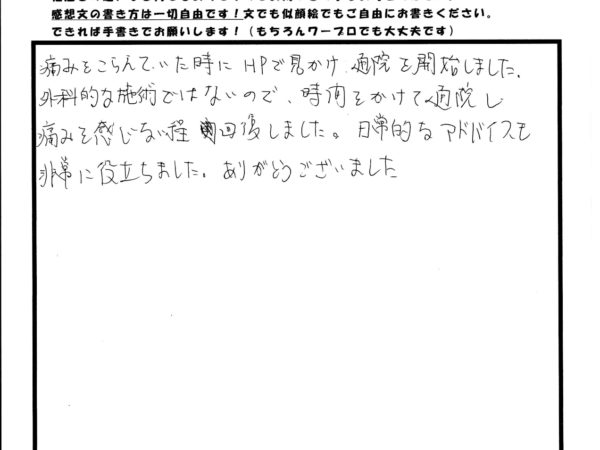 感想文の書き方は一切自由です！文でも似顔絵でもご自由にお書きください。
できれば手書きでお願いします！（もちろんワープロでも大丈夫です）
痛みをこらえていた時にHPで見かけ、通院を開始しました。
外科的な施術ではないので、時間をかけて通院し
痛みを感じない程回復しました。日常的なアドバイスも
非常に役立ちました。ありがとうございました